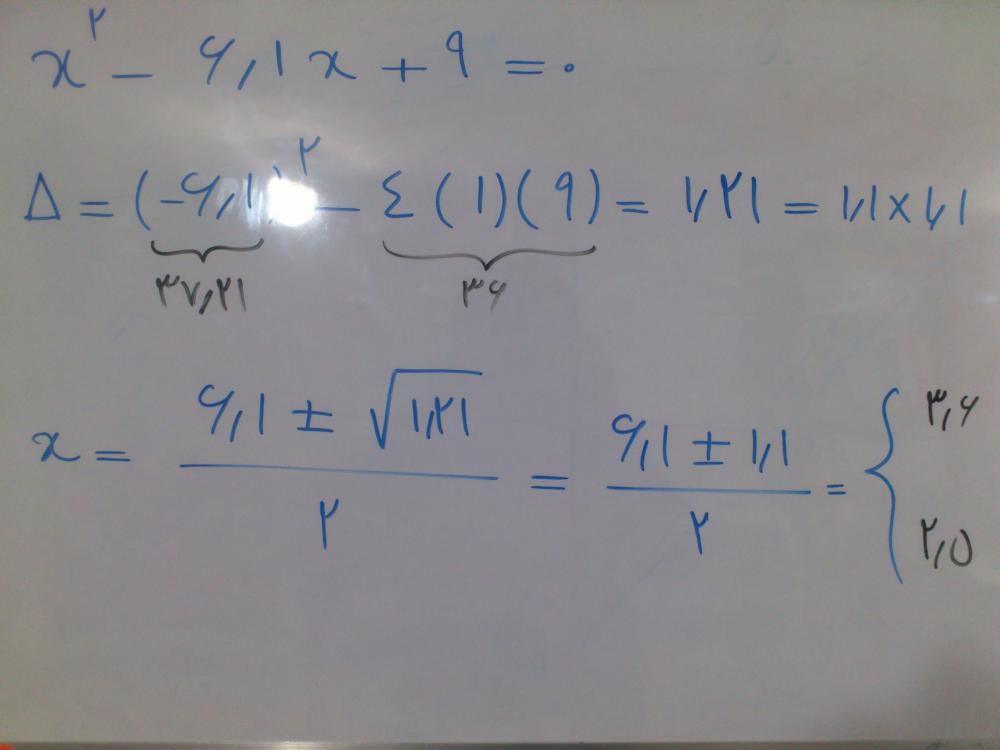 x^۲ - ۶,۱x + ۹ = ۰
Δ = (-۶,۱)^۲ - ٤(۱)(۹) = ۱,۲۱ = ۱,۱ × ۱,۱
۳۷,۲۱ ۳۶
x = (۶,۱ ± √۱,۲۱)/۲ = (۶,۱ ± ۱,۱)/۲ = { ۳,۶
۲,۵